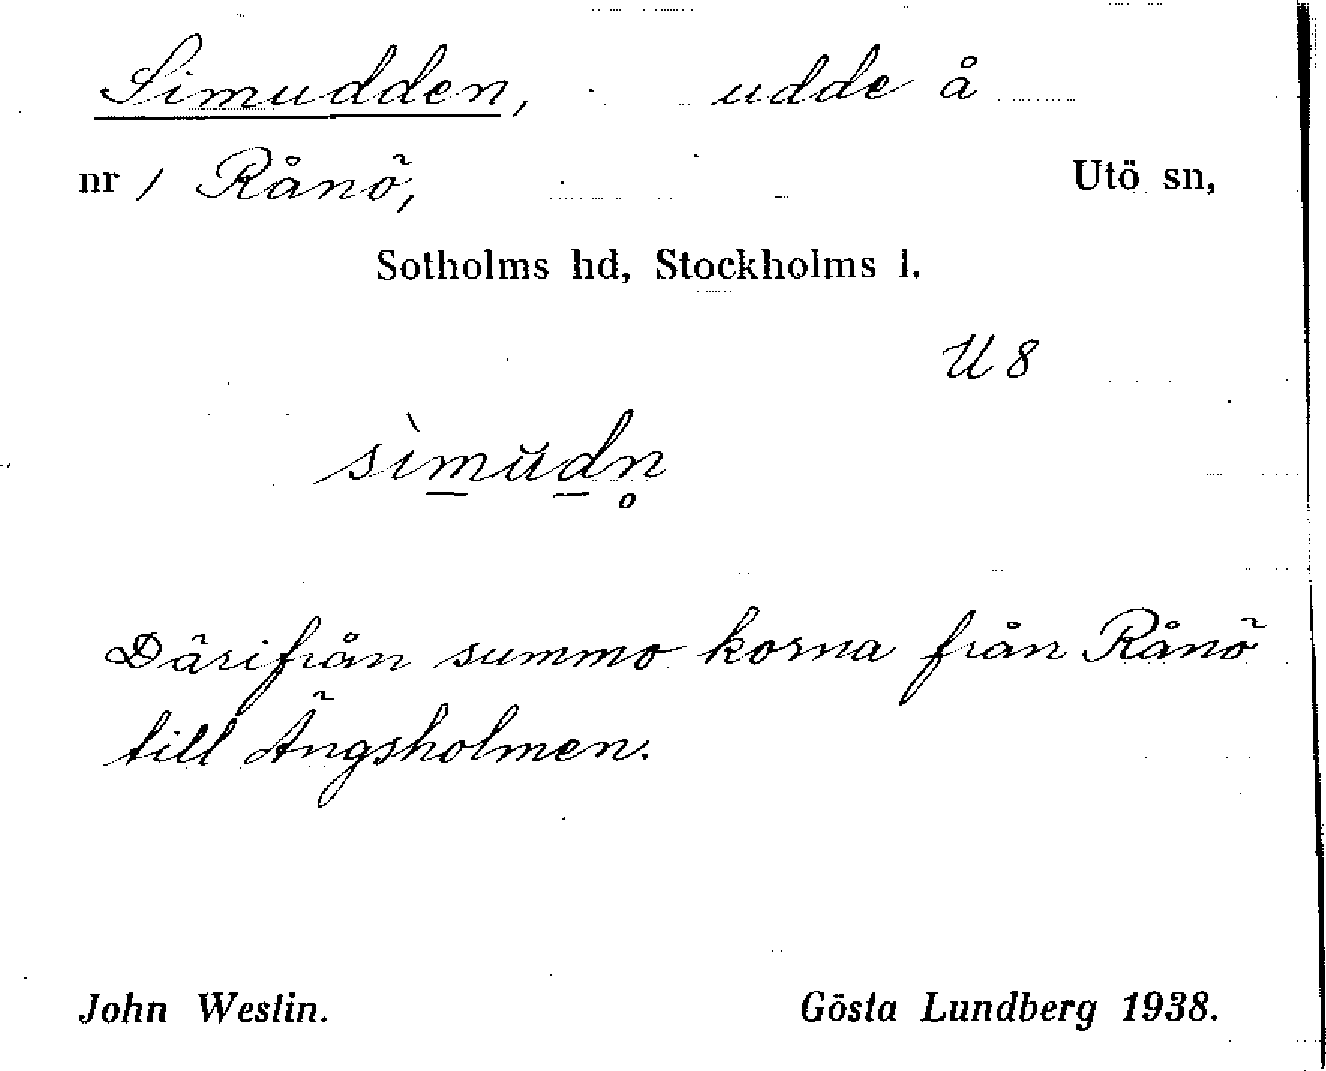 Simudden, udde å
nr 1 Rånö, Utö sn,
Sotholms hd, Stockholms l.
U 8
sìm̲ŭd̲n̥
Därifrån summo korna från Rånö
till Ängsholmen.
John Westin. Gösta Lundberg 1938.